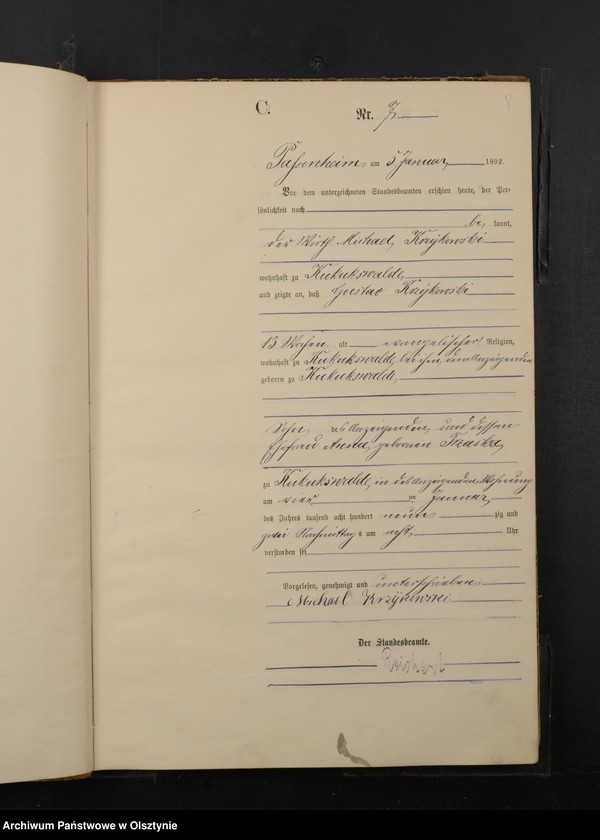 C. Nr. 7
8
Passenheim am 5 Januar 1892.
Vor dem unterzeichneten Standesbeamten erschien heute, der Per-
sönlichkeit nach
be kannt,
der Wirth Michael Krzykowski
wohnhaft zu Kukukswalde
und zeigte an, daß Gustav Krzykowski
13 Wochen alt evangelischer Religion,
wohnhaft zu Kukukswalde, bei ihm, dem Anzeigenden
geboren zu Kukukswalde,
Sohn des Anzeigenden und dessen
Ehefrau Anna, geborenen
zu Kukukswalde, in des Anzeigenden Wohnung
am vier ten Januar
des Jahres tausend acht hundert neun zig und
zwei Nachmittags um acht Uhr
verstorben sei
Vorgelesen, genehmigt und unterschrieben
Michael Krzykowski
Der Standesbeamte.
Archiwum Państwowe w Olsztynie